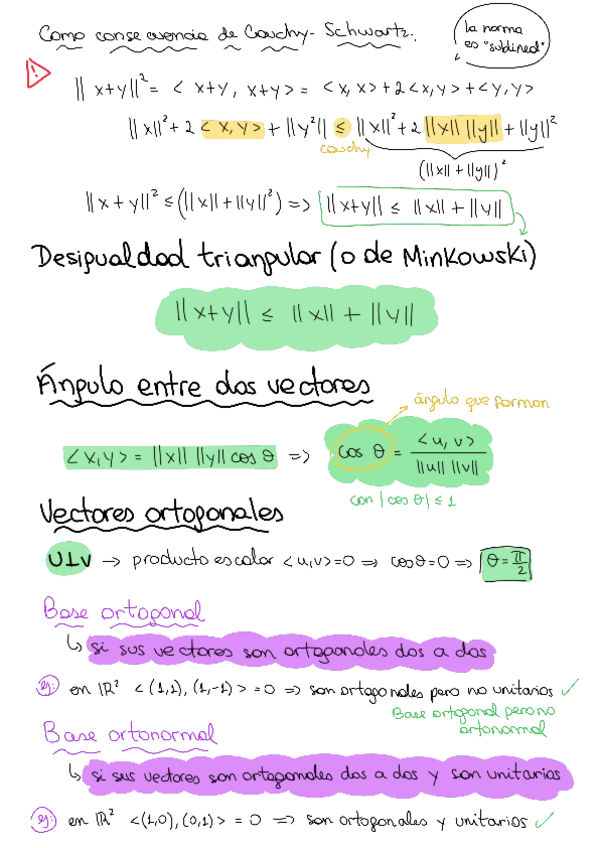 Como consecuencia de Cauchy-Schwartz:
la norma
es "sublineal"
! ||x+y||² = <x+y, x+y> = <x,x>+2<x,y>+<y,y>
||x||²+2<x,y>+||y²|| ≤ ||x||²+2||x|| ||y||+||y||²
cauchy
(||x||+||y||)²
||x+y||² ≤ (||x||+||y||²) => ||x+y|| ≤ ||x||+||y||
Desigualdad triangular (o de Minkowski)
||x+y|| ≤ ||x|| + ||y||
Ángulo entre dos vectores
ángulo que forman
<x,y> = ||x|| ||y|| cos θ => cos θ = <u,v> / ||u|| ||v||
con |cos θ| ≤ 1
Vectores ortogonales
u⊥v → producto escalar <u,v>=0 => cosθ=0 => θ=π/2
Base ortogonal
↳ si sus vectores son ortogonales dos a dos
ej: en IR² <(1,1),(1,-1)> =0 => son ortogonales pero no unitarios ✓
Base ortogonal pero no
ortonormal
Base ortonormal
↳ si sus vectores son ortogonales dos a dos y son unitarios
ej: en IR² <(1,0),(0,1)> = 0 => son ortogonales y unitarios ✓